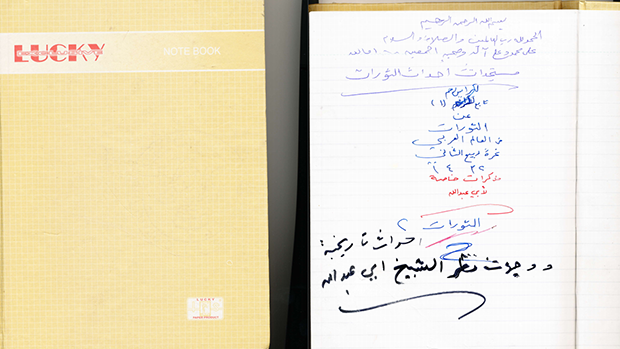 LUCKY
EXCLUSIVE
NOTE BOOK
LUCKY
بسم الله الرحمن الرحيم
الحمد لله رب العالمين والصلاة والسلام
على محمد وعلى آله وصحبه أجمعين
مستجدات أحداث الثورات
(١)
عن
الثورات
في العالم العربي
غرة ربيع الثاني
مذكرات خاصة
لأبي عبدالله
الثورات ٢
أحداث تاريخية
ووجهات نظر الشيخ أبي عبد الله